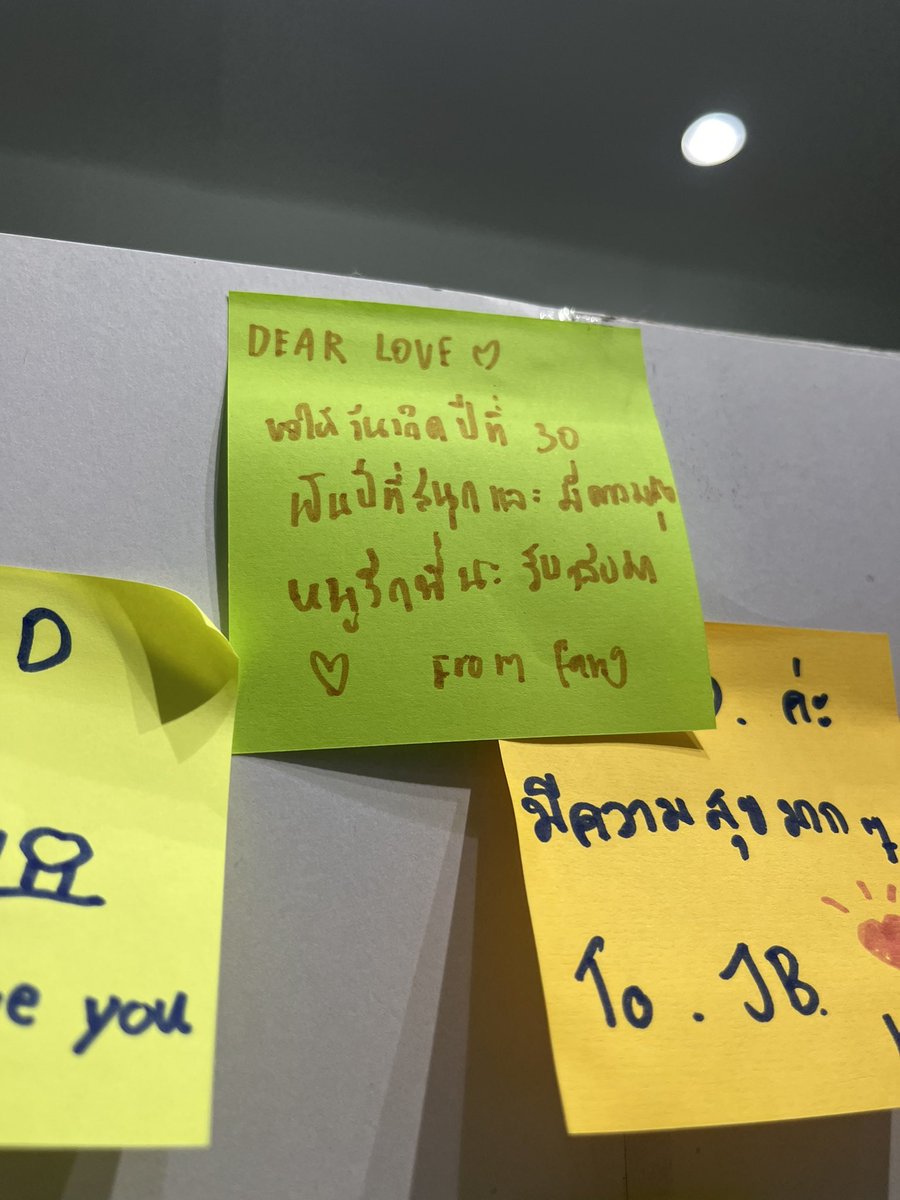 DEAR LOVE ♡
ขอให้วันเกิดปีที่ 30
เป็นปีที่สนุกและ มีความสุข
หนูรักพี่นะ
♡ From Fang
D
you
ค่ะ
มีความสุขมาก ๆ
To. JB.